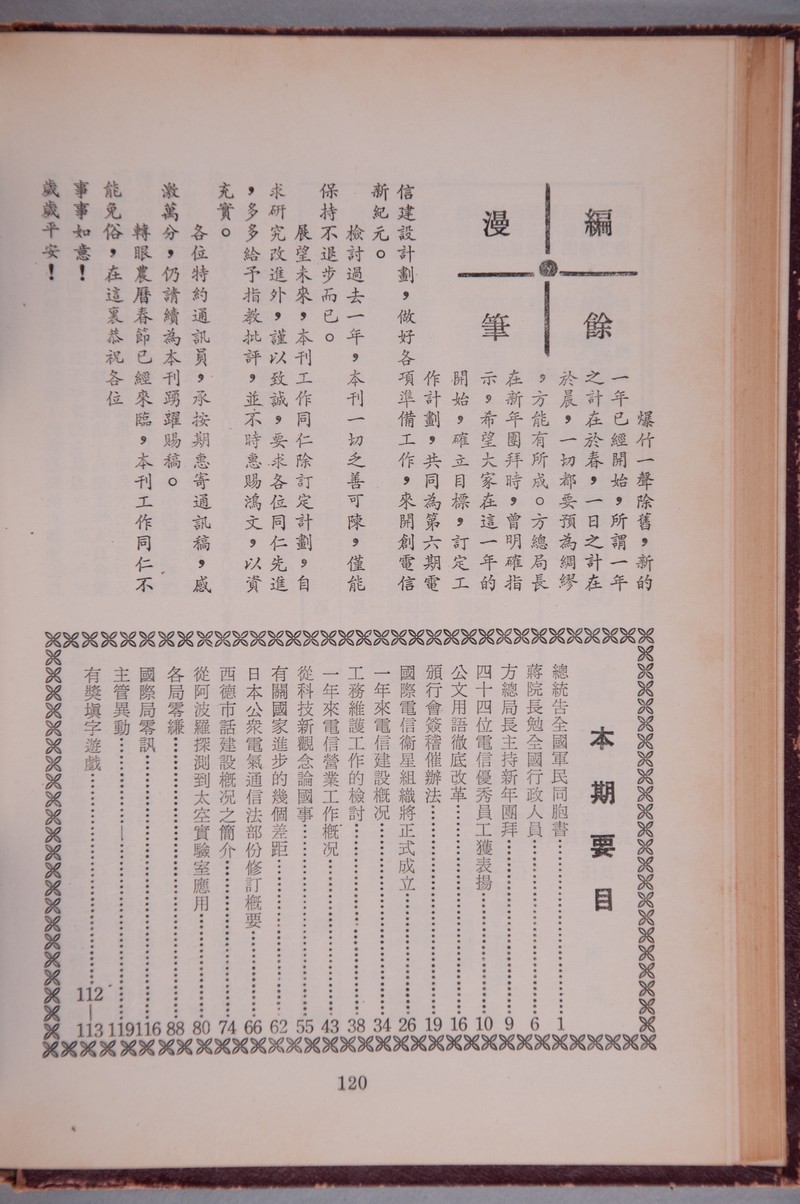 編餘
漫筆
爆竹一聲除舊，新的
一年已經開始，所謂一年
之計在於春，一日之計在
於晨，一切都要預為綢繆
，方能有所成。方總局長
在新年團拜時，曾明確指
示，希望大家在這一年的
開始，確立目標，訂定工
作計劃，共同為第六期電
信建設計劃，做好各項準備工作，來開創電信
新紀元。
檢討過去一年，本刊一切乏善可陳，僅能
保持不退步而已。
展望未來，本刊工作同仁除訂定計劃，自
求研究改進外，謹以致誠，要求各位同仁先進
，多多給予指教批評，並不時惠賜鴻文，以資
充實。
各位特約通訊員，承按期惠寄通訊稿，感
激萬分，仍請續為本刊踴躍賜稿。
轉眼農曆春節已經來臨，本刊工作同仁不
能免俗，在這裏恭祝各位
事事如意！
歲歲平安！
本期要目
總統告全國軍民同胞書……1
蔣院長勉全國行政人員……6
方總局長主持新年團拜……9
四十四位電信優秀員工獲表揚……10
公文用語徹底改革……16
頒行會簽稽催辦法……19
國際電信衛星組織將正式成立……26
一年來電信建設概況……34
工務維護工作的檢討……38
一年來電信營業工作概況……43
從科技新觀念論國事……55
有關國家進步的幾個差距……62
日本公衆電氣通信法部份修訂概要……66
西德市話建設概況之簡介……74
從阿波羅探測到太空實驗室應用……80
各局零縑……88
國際局零訊……116
主管異動……119
有獎塡字遊戲……112—113
120